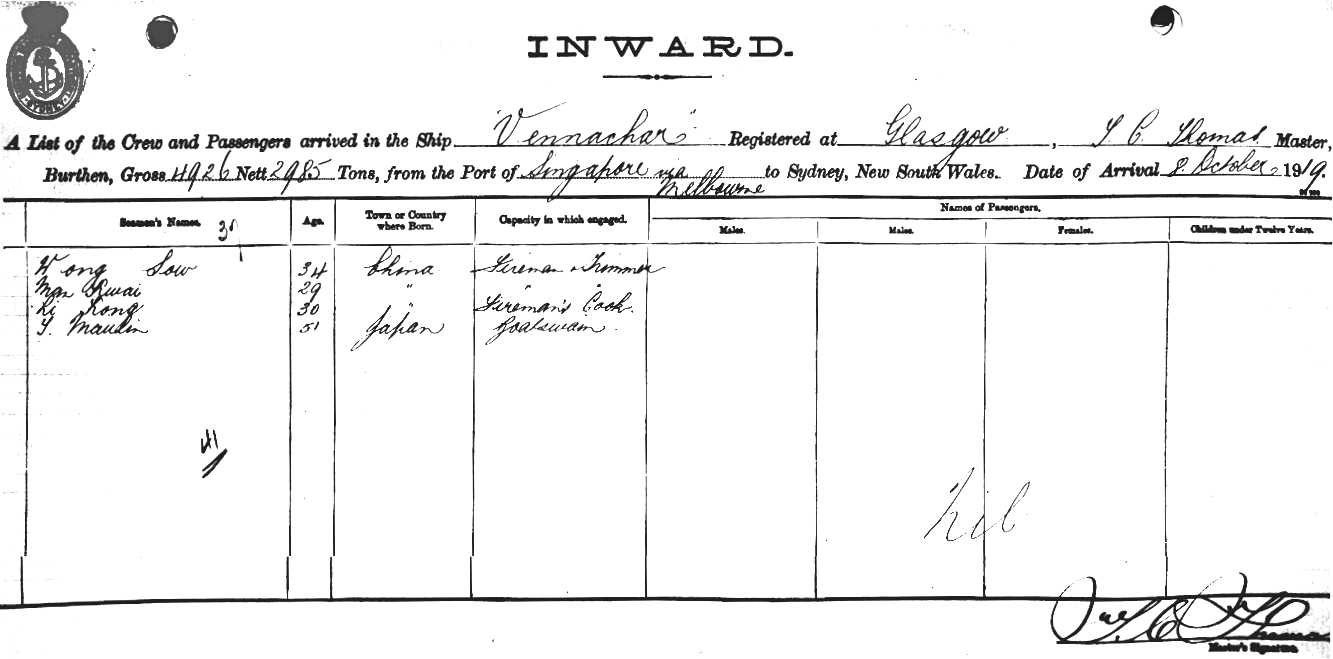 SYDNEY
INWARD.
A List of the Crew and Passengers arrived in the Ship "Vennachar" Registered at Glasgow, T C Thomas Master,
Burthen, Gross 4926 Nett 2985 Tons, from the Port of Singapore via Melbourne to Sydney, New South Wales. Date of Arrival 8 October 1919.
Names of Passengers.
Seamen's Names. Age. Town or Country where Born. Capacity in which engaged. Males. Males. Females. Children under Twelve Years.
Wong Sow 34 China Fireman & Trimmer
Man Kwai 29 " " "
Li Kong 30 " Fireman's Cook.
51 Japan
41
Nil
T. C. Thomas
Master's Signature.